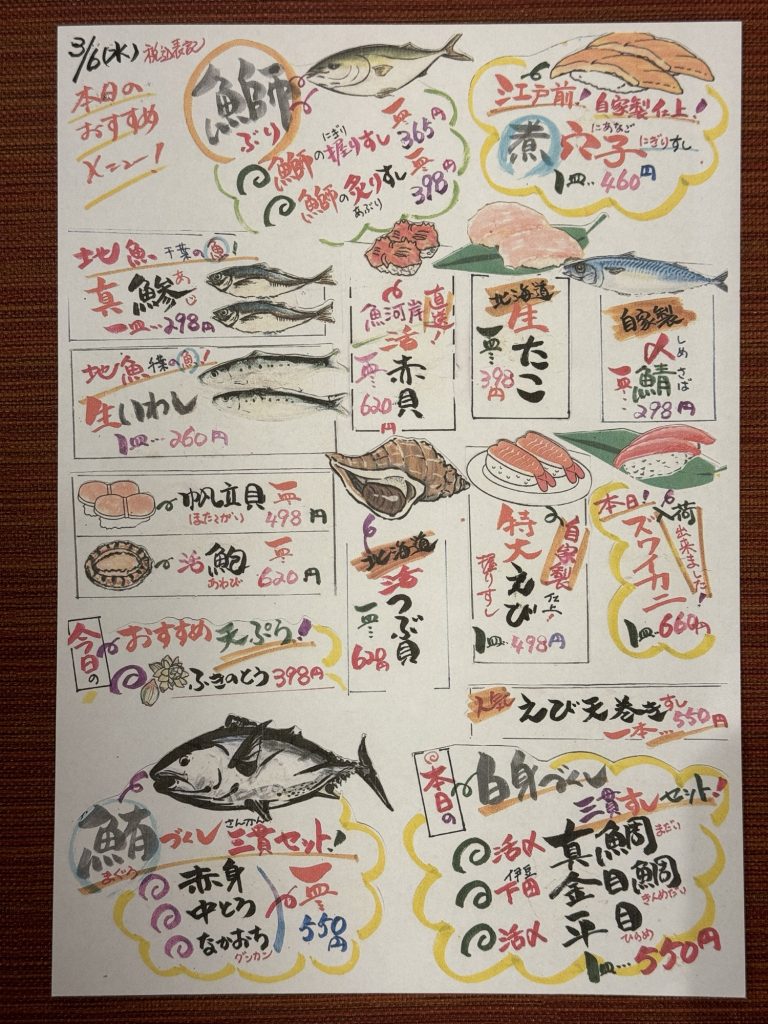 3/6(水) 税込表記
本日の
おすすめ
メニュー!
鰤
ぶり
鰤の握りすし 一皿 365円
にぎり
鰤の炙りすし 一皿 398円
あぶり
江戸前!自家製仕上!
煮穴子 にぎりすし
にあなご
1皿…460円
地魚 千葉の魚!
真鯵
あじ
一皿…298円
地魚 千葉の魚!
生いわし
1皿…260円
魚河岸直送!
活赤貝
一皿…620円
北海道
生たこ
一皿…398円
自家製
〆鯖
しめさば
一皿…298円
帆立貝 一皿 498円
ほたてがい
活鮑 一皿 620円
あわび
北海道
活つぶ貝
一皿…620円
自家製仕上!
特大えび
握りすし
1皿…498円
本日!入荷出来ました!
ズワイカニ
1皿…660円
今日の おすすめ天ぷら!
ふきのとう 398円
人気 えび天巻きすし
一本…550円
鮪づくし 三貫セット!
まぐろ さんかん
赤身
中とろ
なかおち
グンカン
一皿…550円
本日の 白身づくし
三貫すしセット!
活〆 真鯛 まだい
伊豆下田 金目鯛 きんめだい
活〆 平目 ひらめ
1皿…550円